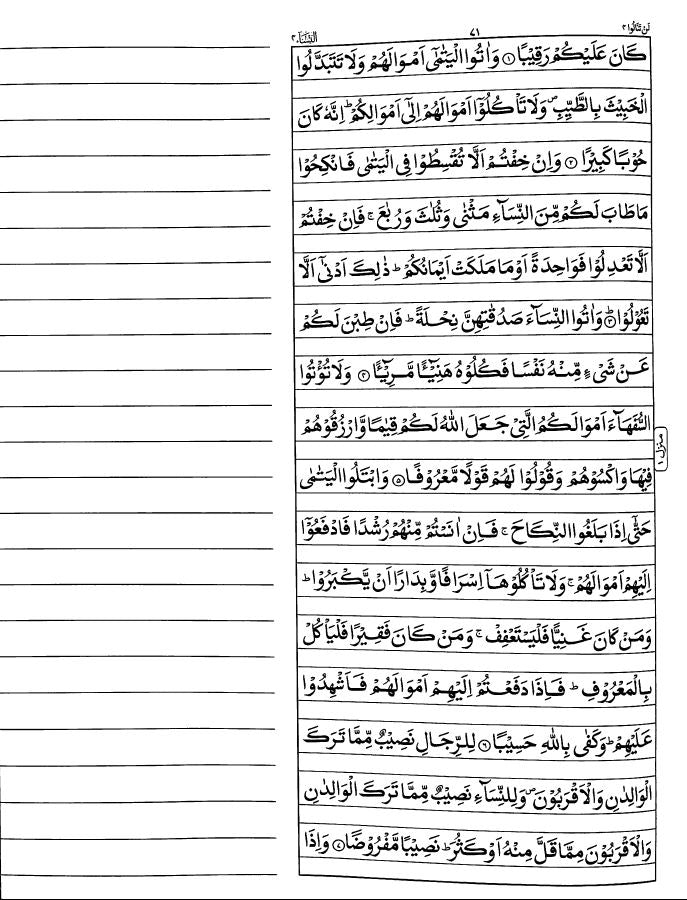 لَنْ تَنَالُوا ۴
۷۱
النِّسَآء ۴
كَانَ عَلَيْكُمْ رَقِيْبًا ۝۱ وَاٰتُوا الْيَتٰمٰٓى اَمْوَالَهُمْ وَلَا تَتَبَدَّلُوا
الْخَبِيْثَ بِالطَّيِّبِ ۪ وَلَا تَاْكُلُوْٓا اَمْوَالَهُمْ اِلٰٓى اَمْوَالِكُمْ ؕ اِنَّهٗ كَانَ
حُوْبًا كَبِيْرًا ۝۲ وَاِنْ خِفْتُمْ اَلَّا تُقْسِطُوْا فِى الْيَتٰمٰى فَانْكِحُوْا
مَا طَابَ لَكُمْ مِّنَ النِّسَآءِ مَثْنٰى وَثُلٰثَ وَرُبٰعَ ۚ فَاِنْ خِفْتُمْ
اَلَّا تَعْدِلُوْا فَوَاحِدَةً اَوْ مَا مَلَكَتْ اَيْمَانُكُمْ ؕ ذٰلِكَ اَدْنٰٓى اَلَّا
تَعُوْلُوْا ؕ۝۳ وَاٰتُوا النِّسَآءَ صَدُقٰتِهِنَّ نِحْلَةً ؕ فَاِنْ طِبْنَ لَكُمْ
عَنْ شَىْءٍ مِّنْهُ نَفْسًا فَكُلُوْهُ هَنِيْٓـًٔا مَّرِيْٓـًٔا ۝۴ وَلَا تُؤْتُوا
السُّفَهَآءَ اَمْوَالَكُمُ الَّتِىْ جَعَلَ اللّٰهُ لَكُمْ قِيٰمًا وَّارْزُقُوْهُمْ
فِيْهَا وَاكْسُوْهُمْ وَقُوْلُوْا لَهُمْ قَوْلًا مَّعْرُوْفًا ۝۵ وَابْتَلُوا الْيَتٰمٰى
منزل ۱
حَتّٰٓى اِذَا بَلَغُوا النِّكَاحَ ۚ فَاِنْ اٰنَسْتُمْ مِّنْهُمْ رُشْدًا فَادْفَعُوْٓا
اِلَيْهِمْ اَمْوَالَهُمْ ۚ وَلَا تَاْكُلُوْهَآ اِسْرَافًا وَّبِدَارًا اَنْ يَّكْبَرُوْا ؕ
وَمَنْ كَانَ غَنِيًّا فَلْيَسْتَعْفِفْ ۚ وَمَنْ كَانَ فَقِيْرًا فَلْيَاْكُلْ
بِالْمَعْرُوْفِ ؕ فَاِذَا دَفَعْتُمْ اِلَيْهِمْ اَمْوَالَهُمْ فَاَشْهِدُوْا
عَلَيْهِمْ ؕ وَكَفٰى بِاللّٰهِ حَسِيْبًا ۝۶ لِلرِّجَالِ نَصِيْبٌ مِّمَّا تَرَكَ
الْوَالِدٰنِ وَالْاَقْرَبُوْنَ ۪ وَلِلنِّسَآءِ نَصِيْبٌ مِّمَّا تَرَكَ الْوَالِدٰنِ
وَالْاَقْرَبُوْنَ مِمَّا قَلَّ مِنْهُ اَوْ كَثُرَ ؕ نَصِيْبًا مَّفْرُوْضًا ۝۷ وَاِذَا